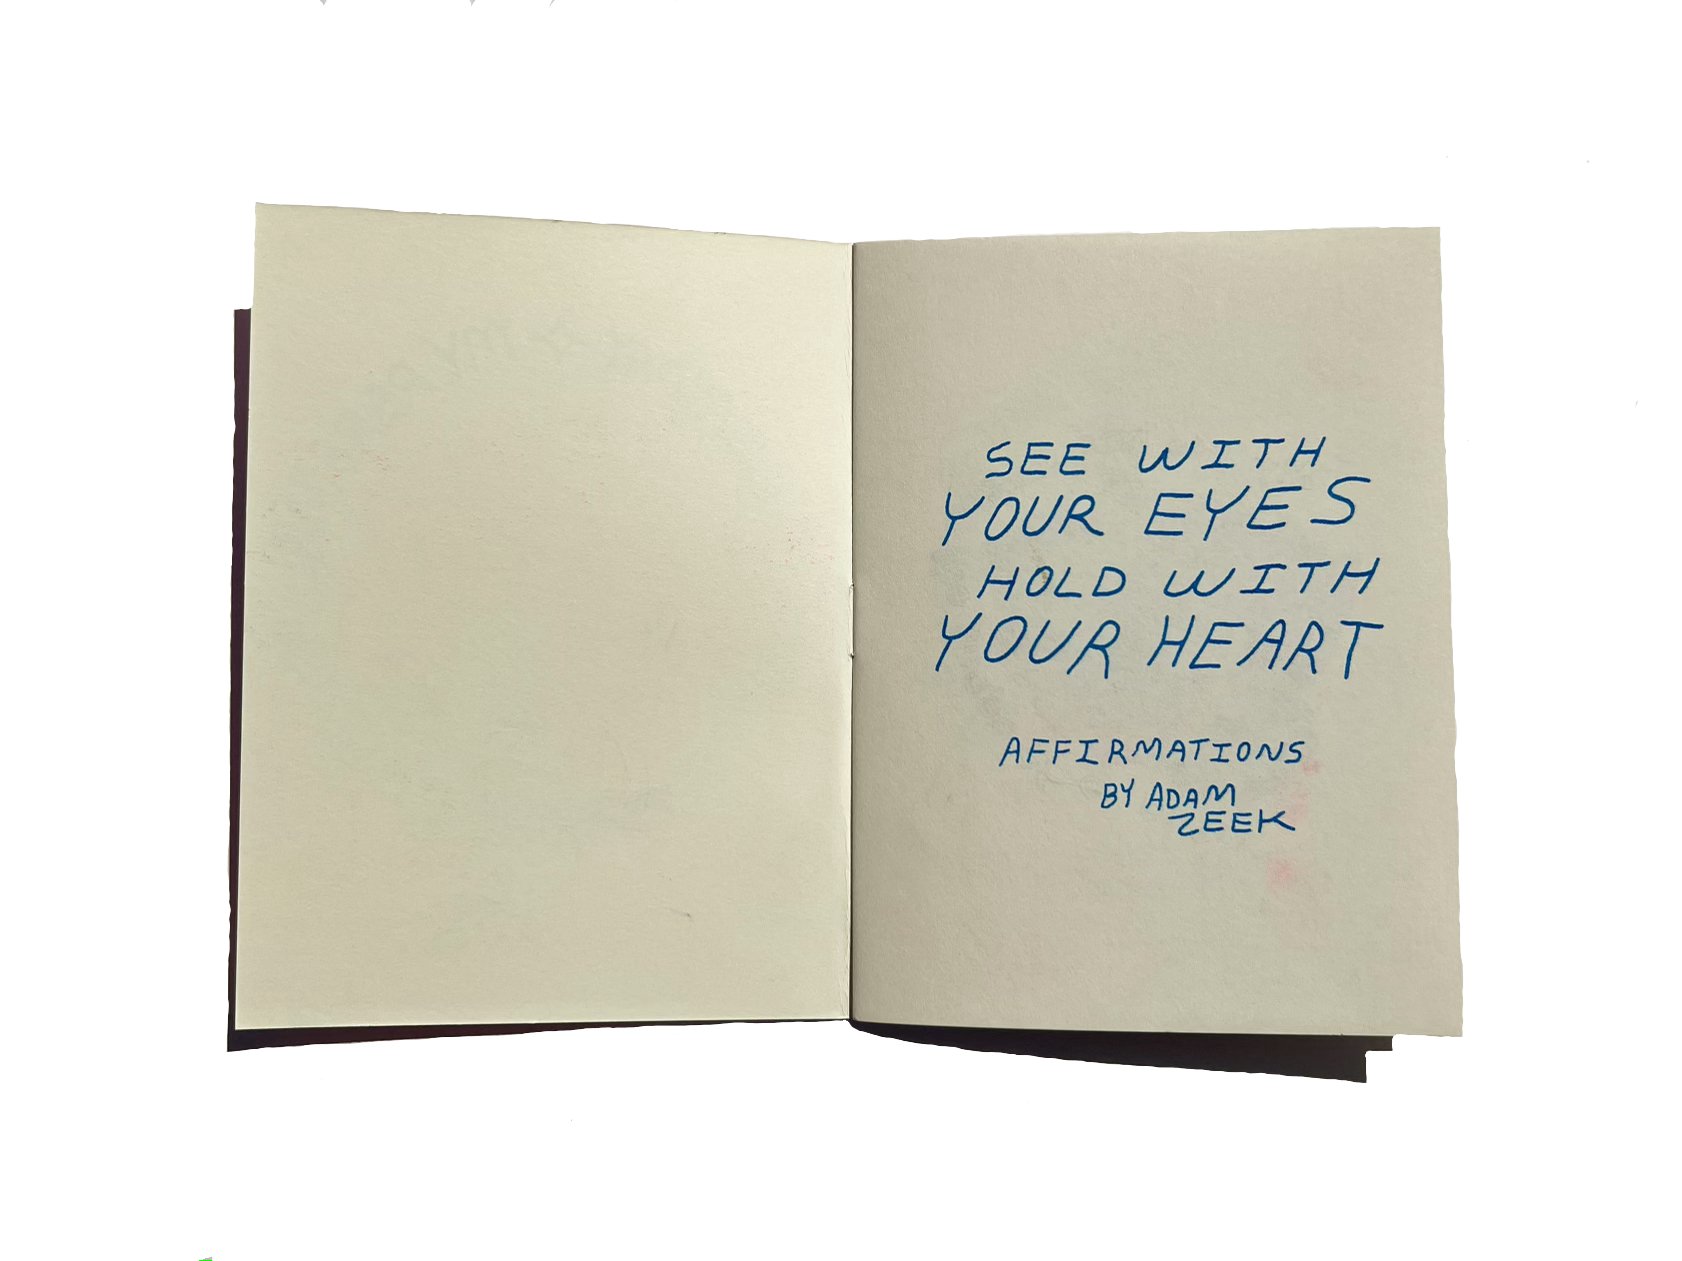 SEE WITH
YOUR EYES
HOLD WITH
YOUR HEART
AFFIRMATIONS
BY ADAM
ZEEK